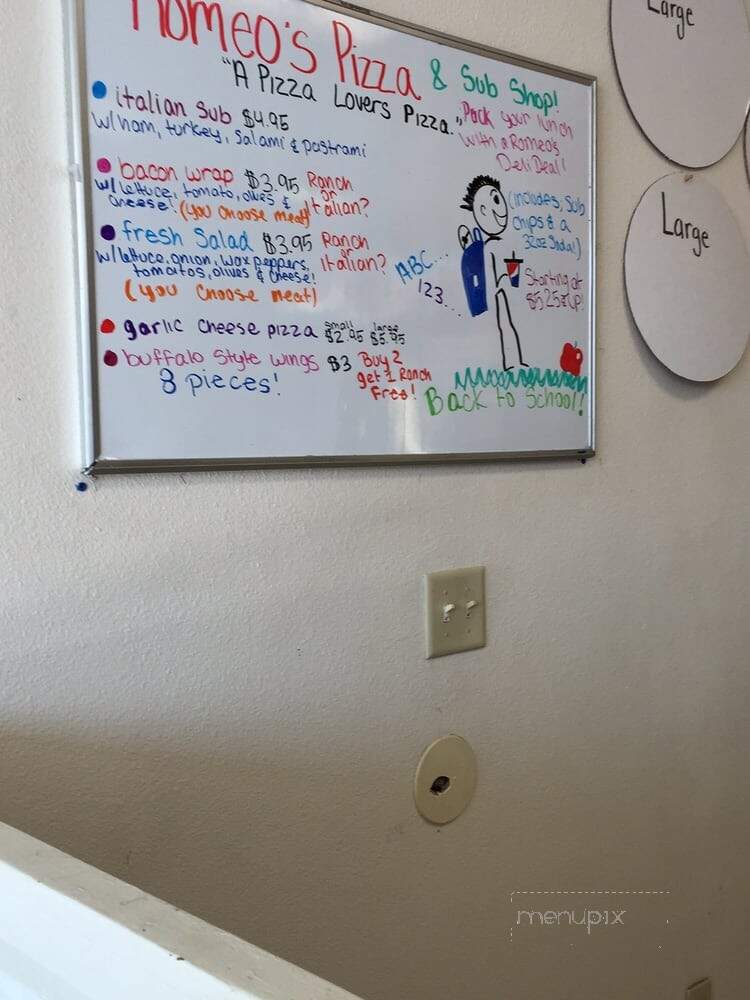 Romeo's Pizza & Sub Shop!
"A Pizza Lovers Pizza."
italian sub $4.95
w/ham, turkey, salami & pastrami
bacon wrap $3.95 Ranch or Italian?
w/ lettuce, tomato, olives &
cheese! (you choose meat)
fresh Salad $3.95 Ranch or Italian?
w/ lettuce, onion, wax peppers,
tomatos, olives & cheese!
(you choose meat)
garlic cheese pizza small $2.95 large $5.95
buffalo style wings $3 Buy 2
8 pieces! get 1 Ranch
Free!
Pack your lunch
with a Romeo's
Deli Deal!
(includes, Sub
Chips & a
32oz Soda!)
Starting at
$5.25 & up!
ABC...
123...
Back to School!
Large
Large
menupix